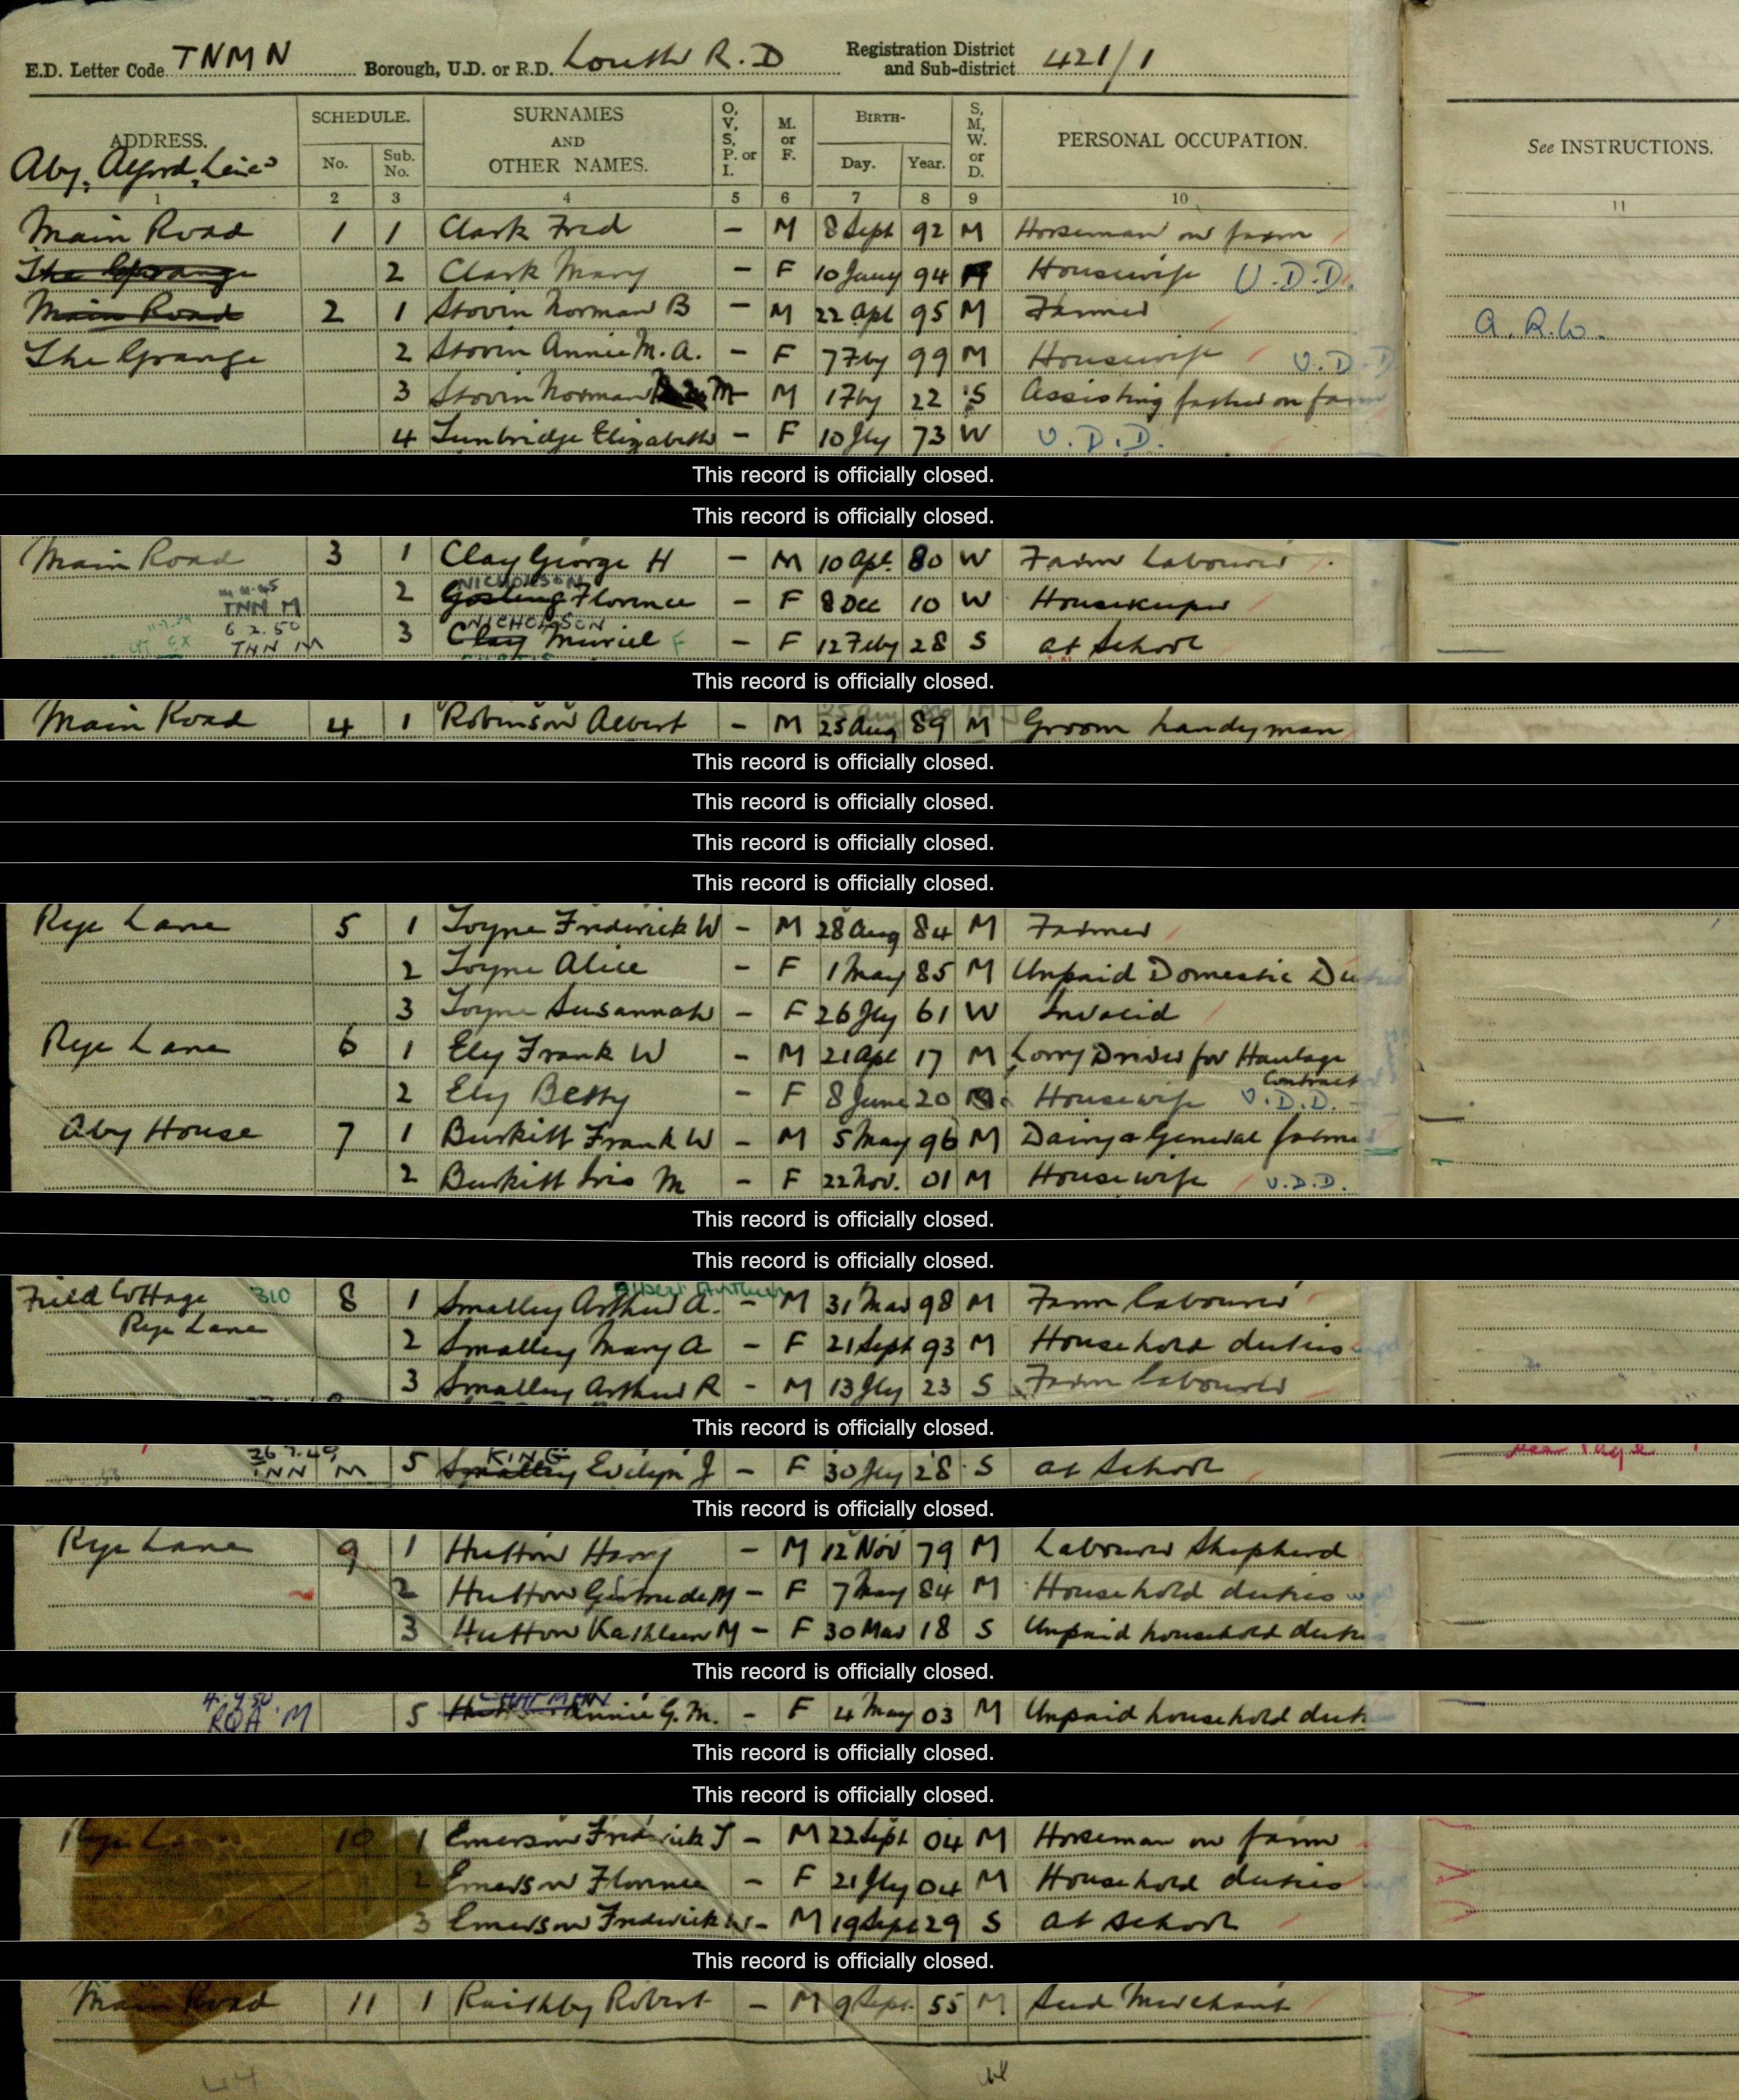 E.D. Letter Code TNMN Borough, U.D. or R.D. Louth R.D Registration District and Sub-district 421/1
ADDRESS. SCHEDULE. SURNAMES AND OTHER NAMES. O, V, S, P. or I. M. or F. BIRTH- S, M, W. or D. PERSONAL OCCUPATION. See INSTRUCTIONS.
Aby, Alford, Lincs No. Sub. No. Day. Year.
1 2 3 4 5 6 7 8 9 10 11
Main Road 1 1 Clark Fred - M 8 Sept 92 M Horseman on farm
The Grange 2 Clark Mary - F 10 Jany 94 M Housewife U.D.D.
Main Road 2 1 Stovin Norman B - M 22 Apl 95 M Farmer A.R.W.
The Grange 2 Stovin Annie M.A. - F 7 Feby 99 M Housewife U.D.D
3 Stovin Norman M - M 1 Feby 22 S Assisting father on farm
4 Tunbridge Elizabeth - F 10 Jly 73 W U.D.D.
This record is officially closed.
This record is officially closed.
Main Road 3 1 Clay George H - M 10 Apl 80 W Farm Labourer
NICHOLSON
TNN M 2 Gosling Florence - F 8 Dec 10 W Housekeeper
6.2.50 NICHOLSON
TNN M 3 Clay Muriel F - F 12 Feby 28 S at School
This record is officially closed.
Main Road 4 1 Robinson Albert - M 25 Aug 89 M Groom handyman
This record is officially closed.
This record is officially closed.
This record is officially closed.
This record is officially closed.
Rye Lane 5 1 Toyne Frederick W - M 28 Aug 84 M Farmer
2 Toyne Alice - F 1 May 85 M Unpaid Domestic Du
3 Toyne Susannah - F 26 Jly 61 W Invalid
Rye Lane 6 1 Ely Frank W - M 21 Apl 17 M Lorry Driver for Haulage
Contract
2 Ely Betty - F 8 June 20 M Housewife U.D.D.
Aby House 7 1 Burkitt Frank W - M 5 May 96 M Dairy & General farme
2 Burkitt Iris M - F 22 Nov. 01 M Housewife U.D.D.
This record is officially closed.
This record is officially closed.
Albert Arthur
Field Cottage 310 8 1 Smalley Arthur A. - M 31 Mar 98 M Farm labourer
Rye Lane 2 Smalley Mary A - F 21 Sept 93 M Household duties
3 Smalley Arthur R - M 13 Jly 23 S Farm labourer
This record is officially closed.
26.7.49 KING
TNN M 5 Smalley Evelyn J - F 30 Jly 28 S at School
This record is officially closed.
Rye Lane 9 1 Hutton Harry - M 12 Nov 79 M Labourer Shepherd
2 Hutton Gertrude M - F 7 May 84 M Household duties
3 Hutton Kathleen M - F 30 Mar 18 S Unpaid household duti
This record is officially closed.
CHAPMAN
RQA M 5 Annie G.M. - F 4 May 03 M Unpaid household duti
This record is officially closed.
This record is officially closed.
Rye Lane 10 1 Emerson Frederick J - M 22 Sept 04 M Horseman on farm
2 Emerson Florence - F 21 Jly 04 M Household duties
3 Emerson Frederick W - M 19 Sept 29 S at School
This record is officially closed.
Main Road 11 1 Raithby Robert - M 9 Sept. 55 M. Seed Merchant